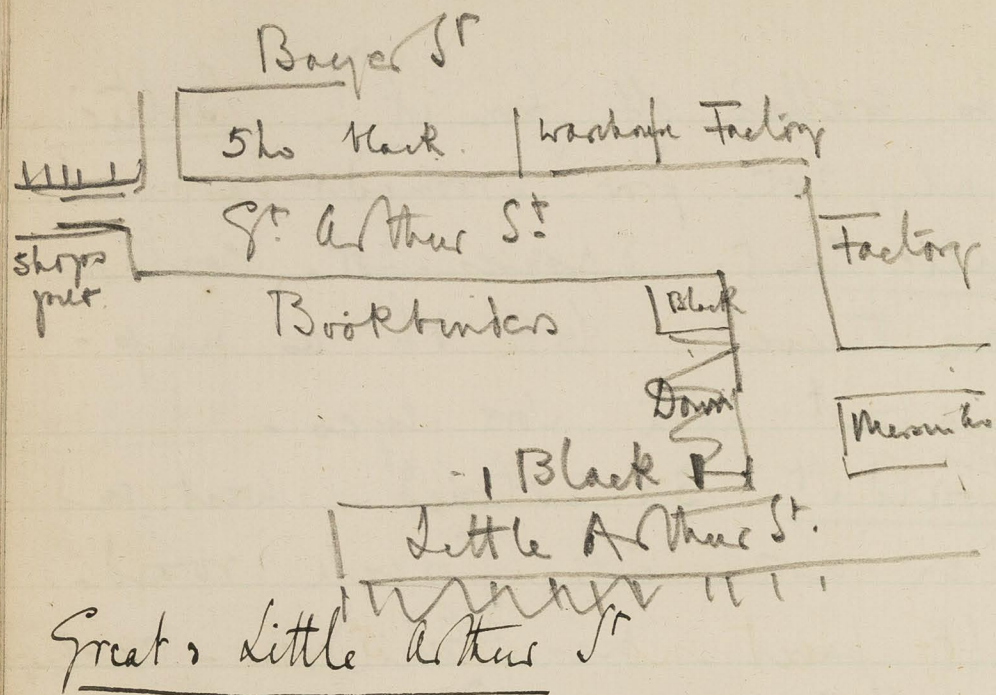 Bayer St
5 ho black. warehouse Factory
Gt. Arthur St.
Factory
shops
Bookbinders Black
Black
Little Arthur St.
Great & Little Arthur St